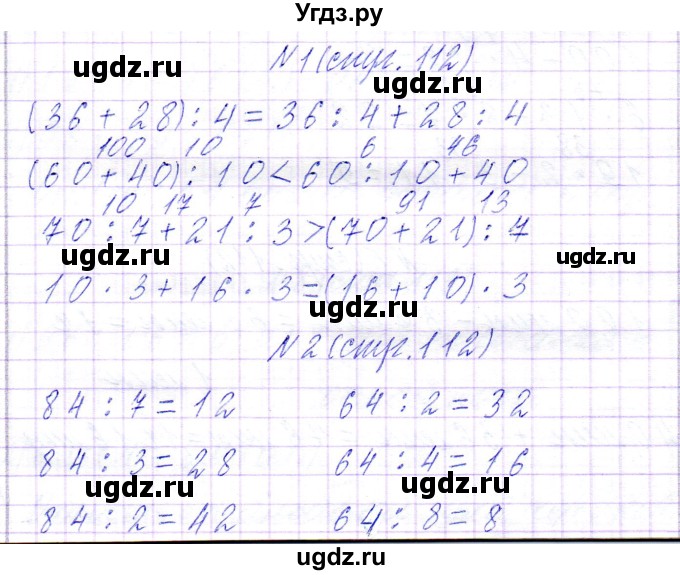 Угдз.ру
N1(стр. 112)
ugdz.ru
ugdz.ru
(36 + 28) : 4 = 36 : 4 + 28 : 4
100 10 6 46
(60 + 40) : 10 < 60 : 10 + 40
ugdz.ru
ugdz.ru
10 17 7 91 13
70 : 7 + 21 : 3 > (70 + 21) : 7
ugdz.ru
ugdz.ru
10 · 3 + 16 · 3 = (16 + 10) · 3
ugdz.ru
N2(стр. 112)
ugdz.ru
84 : 7 = 12 64 : 2 = 32
84 : 3 = 28 64 : 4 = 16
ugdz.ru
ugdz.ru
84 : 2 = 42 64 : 8 = 8
ugdz.ru
ugdz.ru